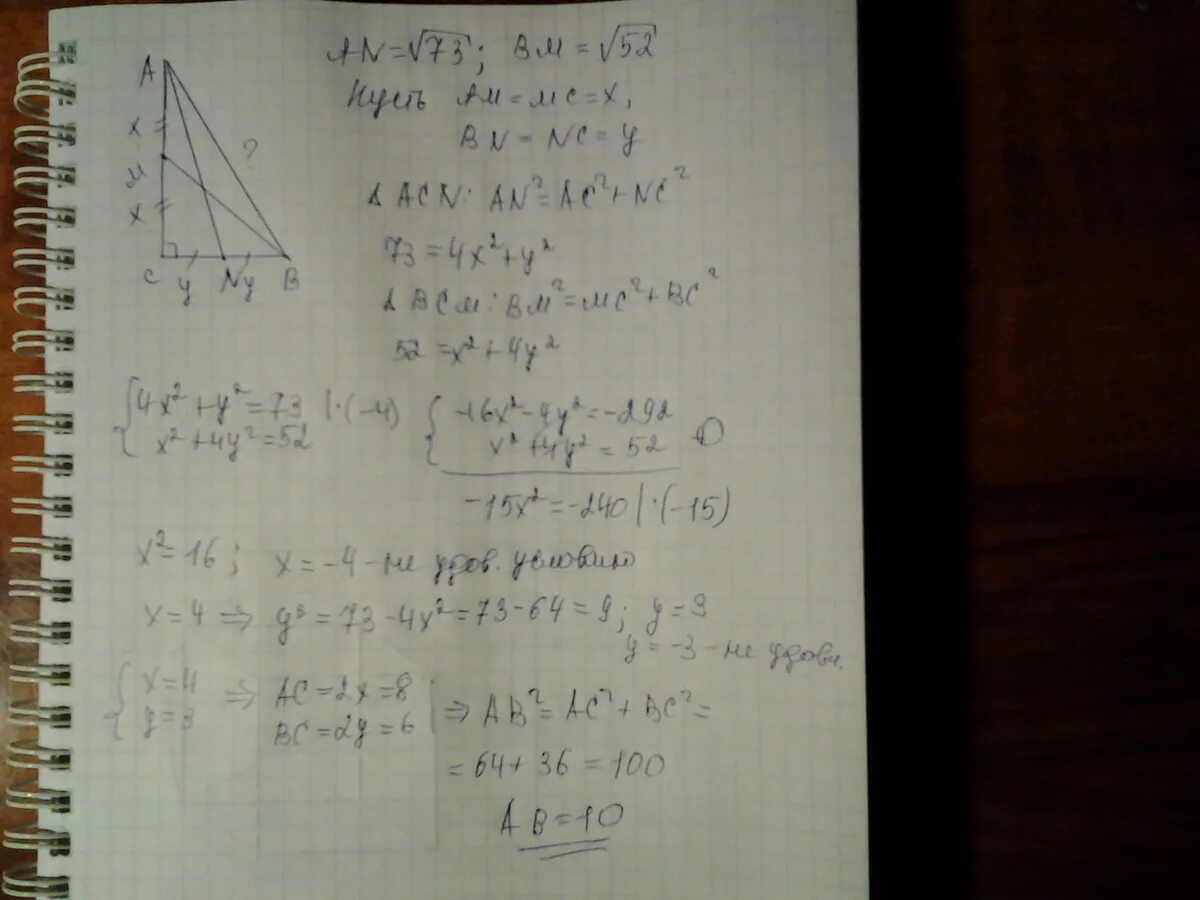 A
x
M
x
?
C y N y B
AN = √73; BM = √52
Пусть AM = MC = x,
BN = NC = y
Δ ACN: AN² = AC² + NC²
73 = 4x² + y²
Δ BCM: BM² = MC² + BC²
52 = x² + 4y²
{ 4x² + y² = 73 | ·(-4)
x² + 4y² = 52
{ -16x² - 4y² = -292
x² + 4y² = 52
-15x² = -240 | ·(-15)
x² = 16; x = -4 - не удов. условию
x = 4 ⇒ y² = 73 - 4x² = 73 - 64 = 9; y = 3
y = -3 - не удовл.
{ x = 4
y = 3
⇒ AC = 2x = 8
BC = 2y = 6
⇒ AB² = AC² + BC² =
= 64 + 36 = 100
AB = 10